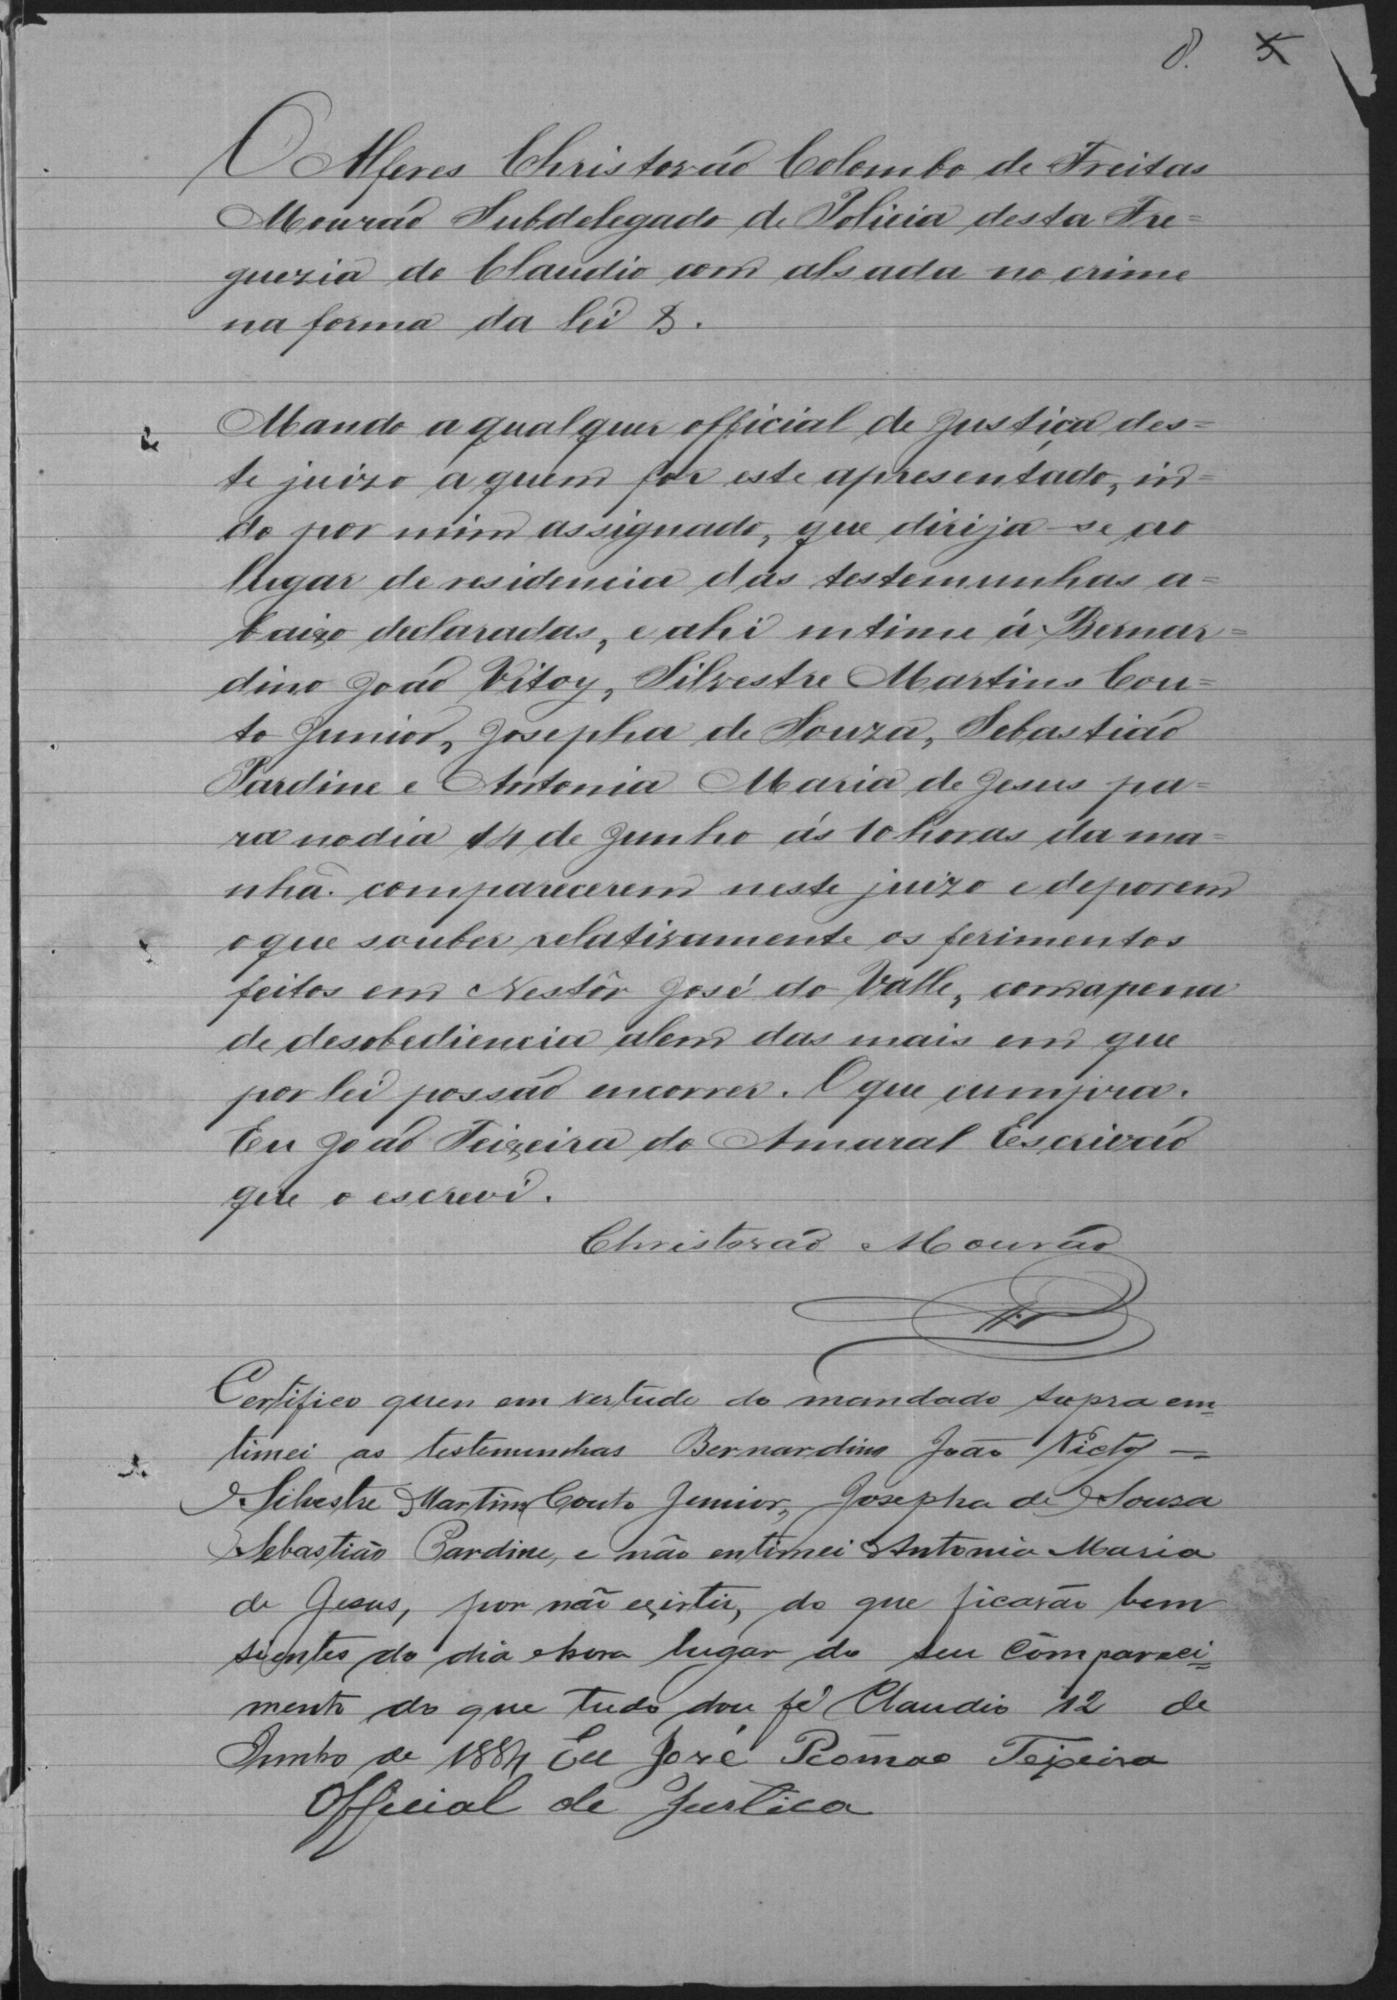 8. 5
O Alferes Christovão Colombo de Freitas
Mourão Subdelegado de Policia desta Fre=
guezia do Claudio com alsada no crime
na forma da lei &.
Mando a qualquer official de Justiça des=
te juizo a quem for este apresentádo, in=
do por mim assignado, que dirija-se ao
lugar de residencia das testemunhas a=
baixo declaradas, e ahi intime á Bernar=
dino João Vitoy, Silvestre Martins Cou=
to Junior, Josepha de Souza, Sebastião
Pardine e Antonia Maria de Jesus pa=
ra no dia 14 de Junho ás 10 horas da ma=
nhã. comparecerem neste juizo e deporem
o que souber relativamente os ferimentos
feitos em Nestôr José do Valle, com a pena
de desobediencia alem das mais em que
por lei possão encorrer. O que cumpra.
Eu João Teixeira do Amaral Escrivão
que o escrevi.
Christovão Mourão
Certifico quen em vertude do mandado supra em=
timei as testemunhas Bernardino João Victoy
Silvestre Martins Couto Junior, Josepha de Souza
Sebastião Pardine, e não entimei Antonia Maria
de Jesus, por não existir, do que ficarão bem
sientes do dia e hora lugar do seu Comparaci=
mento do que tudo dou fé Claudio 12 de
Junho de 1884 Eu José Romão Teixeira
Official de Justica